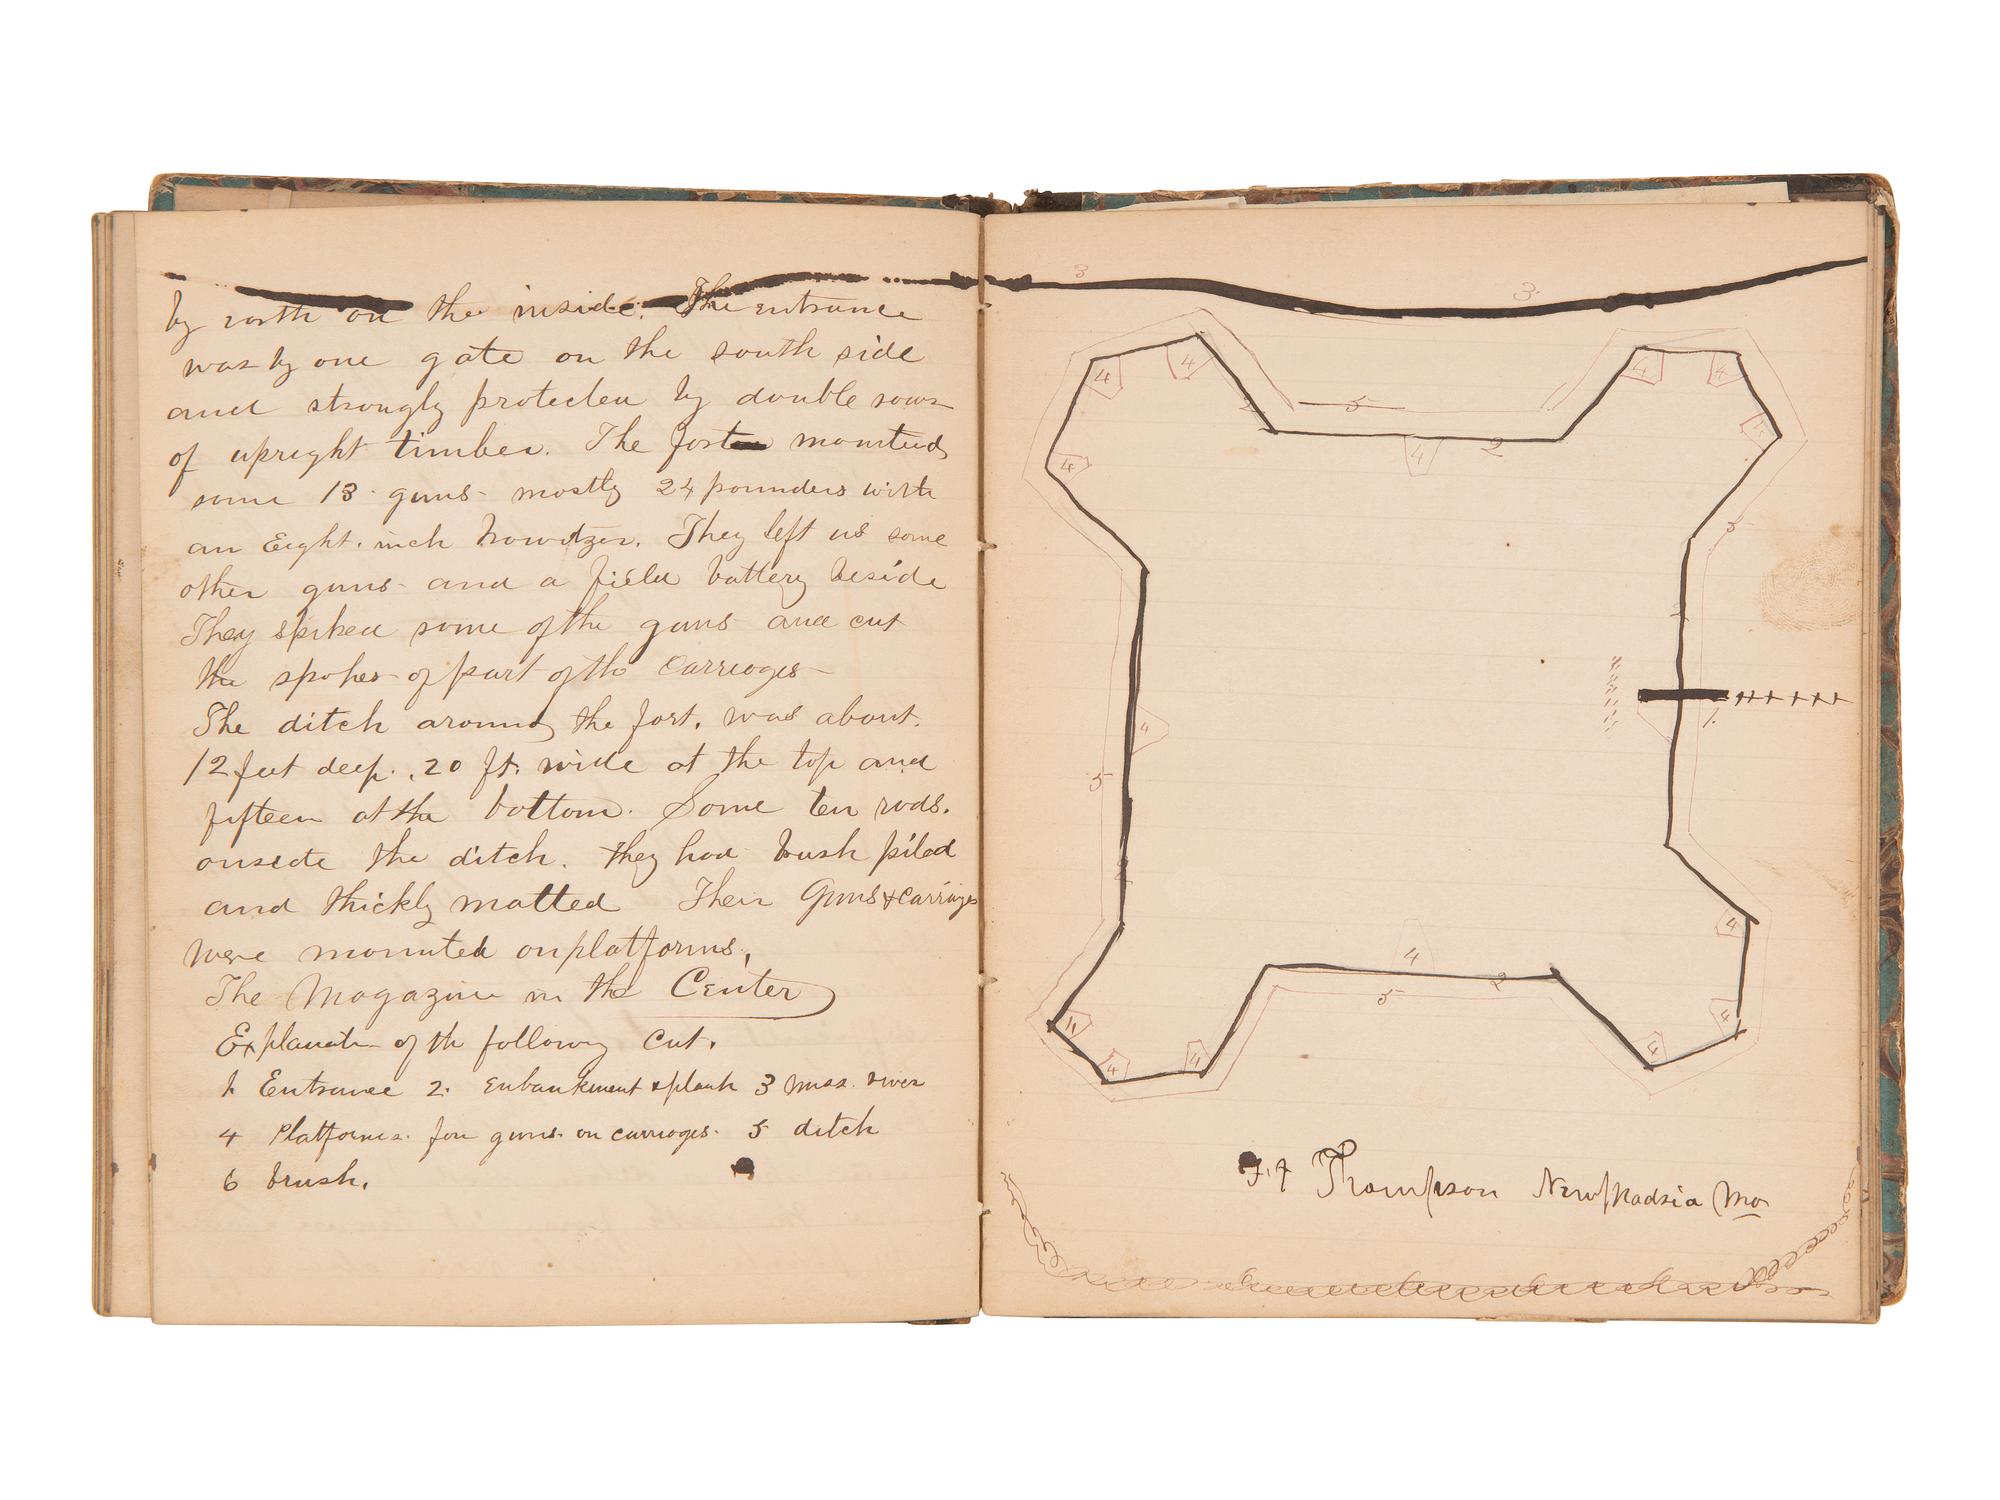 by earth on the inside. The entrance
was by one gate on the south side
and strongly protected by double rows
of upright timber. The fort mounted
some 13 guns mostly 24 pounders with
an Eight inch howitzer. They left us some
other guns and a field battery beside
They spiked some of the guns and cut
the spokes of part of the carriages
The ditch around the fort. was about.
12 feet deep. 20 ft. wide at the top and
fifteen at the bottom. Some ten rods.
outside the ditch. they had brush piled
and thickly matted Their Guns & carriages
were mounted on platforms,
The Magazine in the Center
Explanatn of th following cut.
1. Entrance 2. Enbankment & plank 3 Miss. river
4 Platforms. for guns on carriages. 5 ditch
6 brush.
3 3
4 4 4 4
2 5
4 4 2 4
5
2
1.
4
5
2
4 4
4 5 2
4 4 4 4
Ft Thompson New Madria Mo